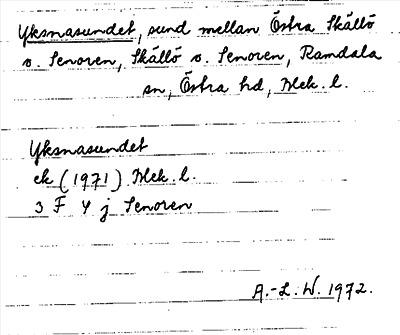 Yksnasundet, sund mellan Östra Skällö
o. Senoren, Skällö o. Senoren, Ramdala
sn, Östra hd, Blek. l.
Yksnasundet
ek (1971) Blek. l.
3 F 4 j Senoren
A.-L. W. 1972.